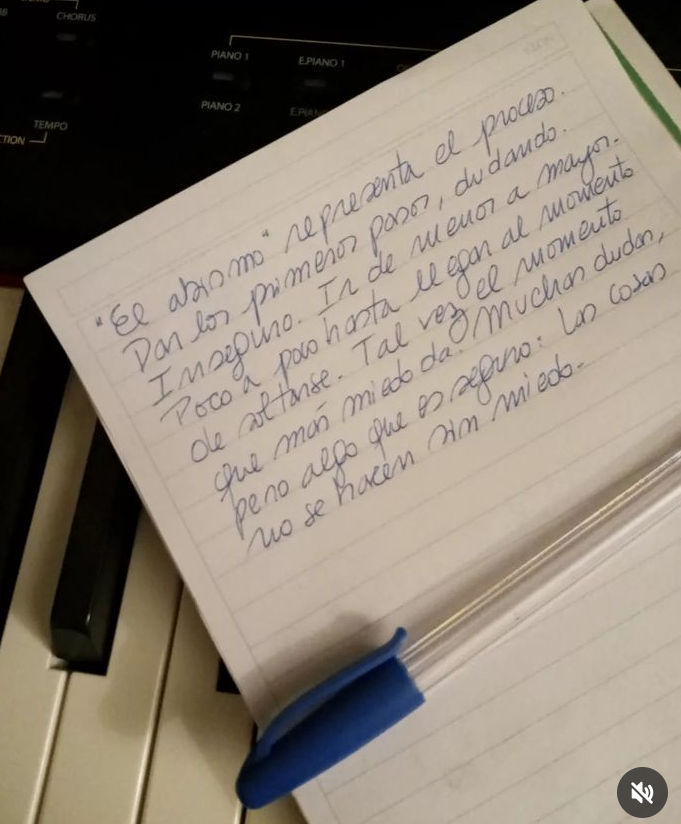 CHORUS
PIANO 1
E.PIANO 1
PIANO 2
TEMPO
"El abismo" representa el proceso.
Dar los primeros pasos, dudando.
Inseguro. Ir de menor a mayor.
Poco a poco hasta llegar al momento
de soltarse. Tal vez el momento
que más miedo da. Muchas dudas,
pero algo que es seguro: las cosas
no se hacen sin miedo.